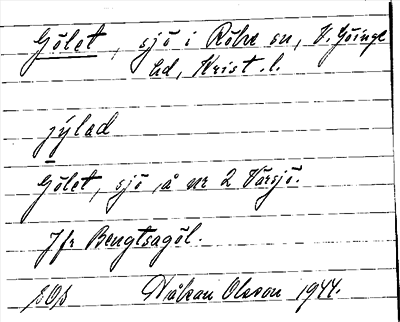 Gölet, sjö i Röke sn, V. Göinge
hd, Krist. l.
jýlad
Gölet, sjö å nr 2 Vårsjö.
Jfr Bengtsagöl.
Håkan Olsson 1944.